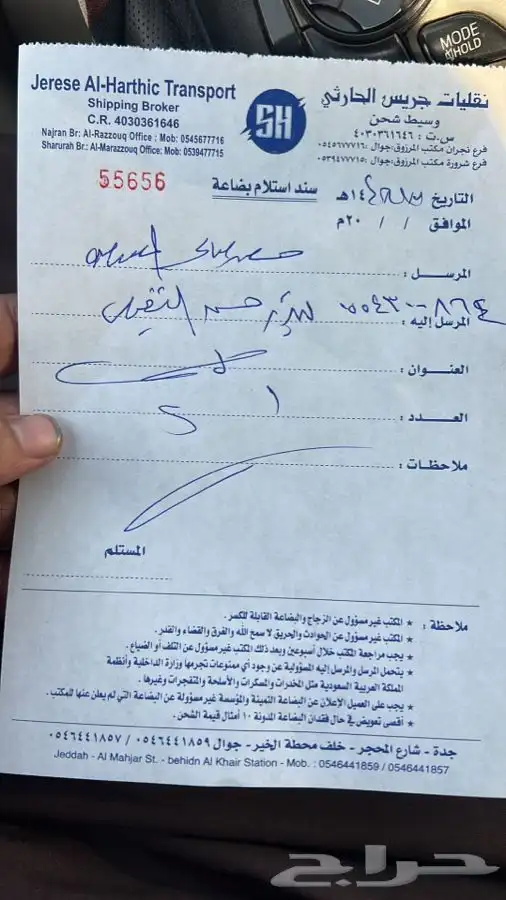 MODE
HOLD
Jerese Al-Harthic Transport
Shipping Broker
C.R. 4030361646
Najran Br: Al-Razzouq Office : Mob: 0545677716
Sharurah Br.: Al-Marazzouq Office: Mob: 0539477715
SH
نقليات جريس الحارثي
وسيط شحن
س.ت : ٤٠٣٠٣٦١٦٤٦
فرع نجران مكتب المرزوق:جوال : ٠٥٤٥٦٧٧٧١٦
فرع شرورة مكتب المرزوق:جوال : ٠٥٣٩٤٧٧٧١٥
55656
سند استلام بضاعة
التاريخ ١٤هـ
الموافق / / ٢٠م
المرسل :
المرسل إليه :
العنوان :
العدد :
ملاحظات :
المستلم
ملاحظة :
★ المكتب غير مسؤول عن الزجاج والبضاعة القابلة للكسر.
★ المكتب غير مسؤول عن الحوادث والحريق لا سمح الله والغرق والقضاء والقدر.
★ يجب مراجعة المكتب خلال أسبوعين وبعد ذلك المكتب غير مسؤول عن التلف أو الضياع.
★ يتحمل المرسل والمرسل إليه المسؤولية عن وجود أي ممنوعات تجرمها وزارة الداخلية وأنظمة
المملكة العربية السعودية مثل المخدرات والمسكرات والأسلحة والمتفجرات وغيرها.
★ يجب على العميل الإعلان عن البضاعة الثمينة والمؤسسة غير مسؤولة عن البضاعة التي لم يعلن عنها للمكتب.
★ أقصى تعويض في حال فقدان البضاعة المدونة ١٠ أمثال قيمة الشحن.
جدة - شارع المحجر - خلف محطة الخير - جوال ٠٥٤٦٤٤١٨٥٩ / ٠٥٤٦٤٤١٨٥٧
Jeddah - Al Mahjar St. - behidn Al Khair Station - Mob. : 0546441859 / 0546441857
حراج